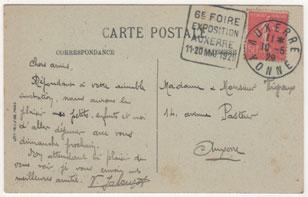 CARTE POSTALE
CORRESPONDANCE
6e FOIRE
EXPOSITION
AUXERRE
11-20 MAI 1929
AUXERRE
11
10-5
29
YONNE
Chers amis,
Répondant à votre aimable
invitation, nous aurons le
plaisir mes petits enfants et moi
d'aller déjeuner avec vous
dimanche prochain.
En attendant le plaisir de
vous voir je vous envoie mes
meilleures amitiés.
Madame & Monsieur
14, avenue Pasteur
Auxerre